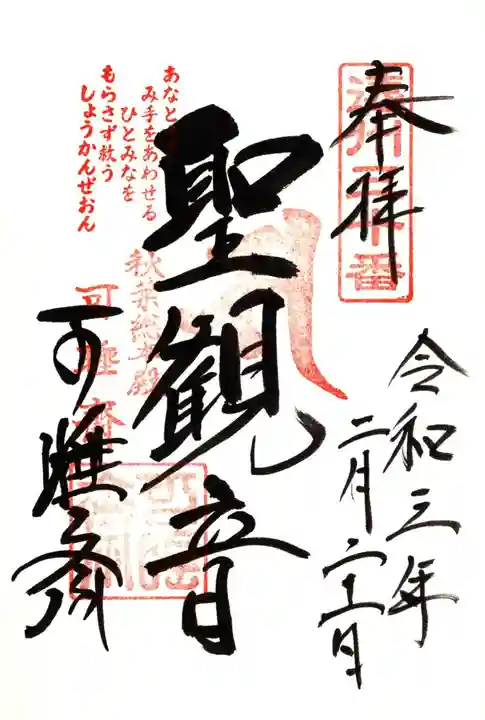 奉拝
令和三年
二月二十二日
聖観音
あなとう
み手をあわせる
ひとみなを
もらさず救う
しょうかんぜおん
秋葉総本殿
可睡齋
可睡斎